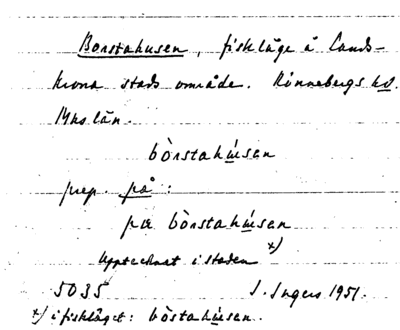 Borstahusen, fiskläge å Lands-
krona stads område. Rönnebergs hd.
Mhs län.
bòrstahúsen
prep. på:
pæ bòrstahúsen
Upptecknat i staden x)
5035 I. Ingers 1951.
x) i fiskläget: bòstahúsen.